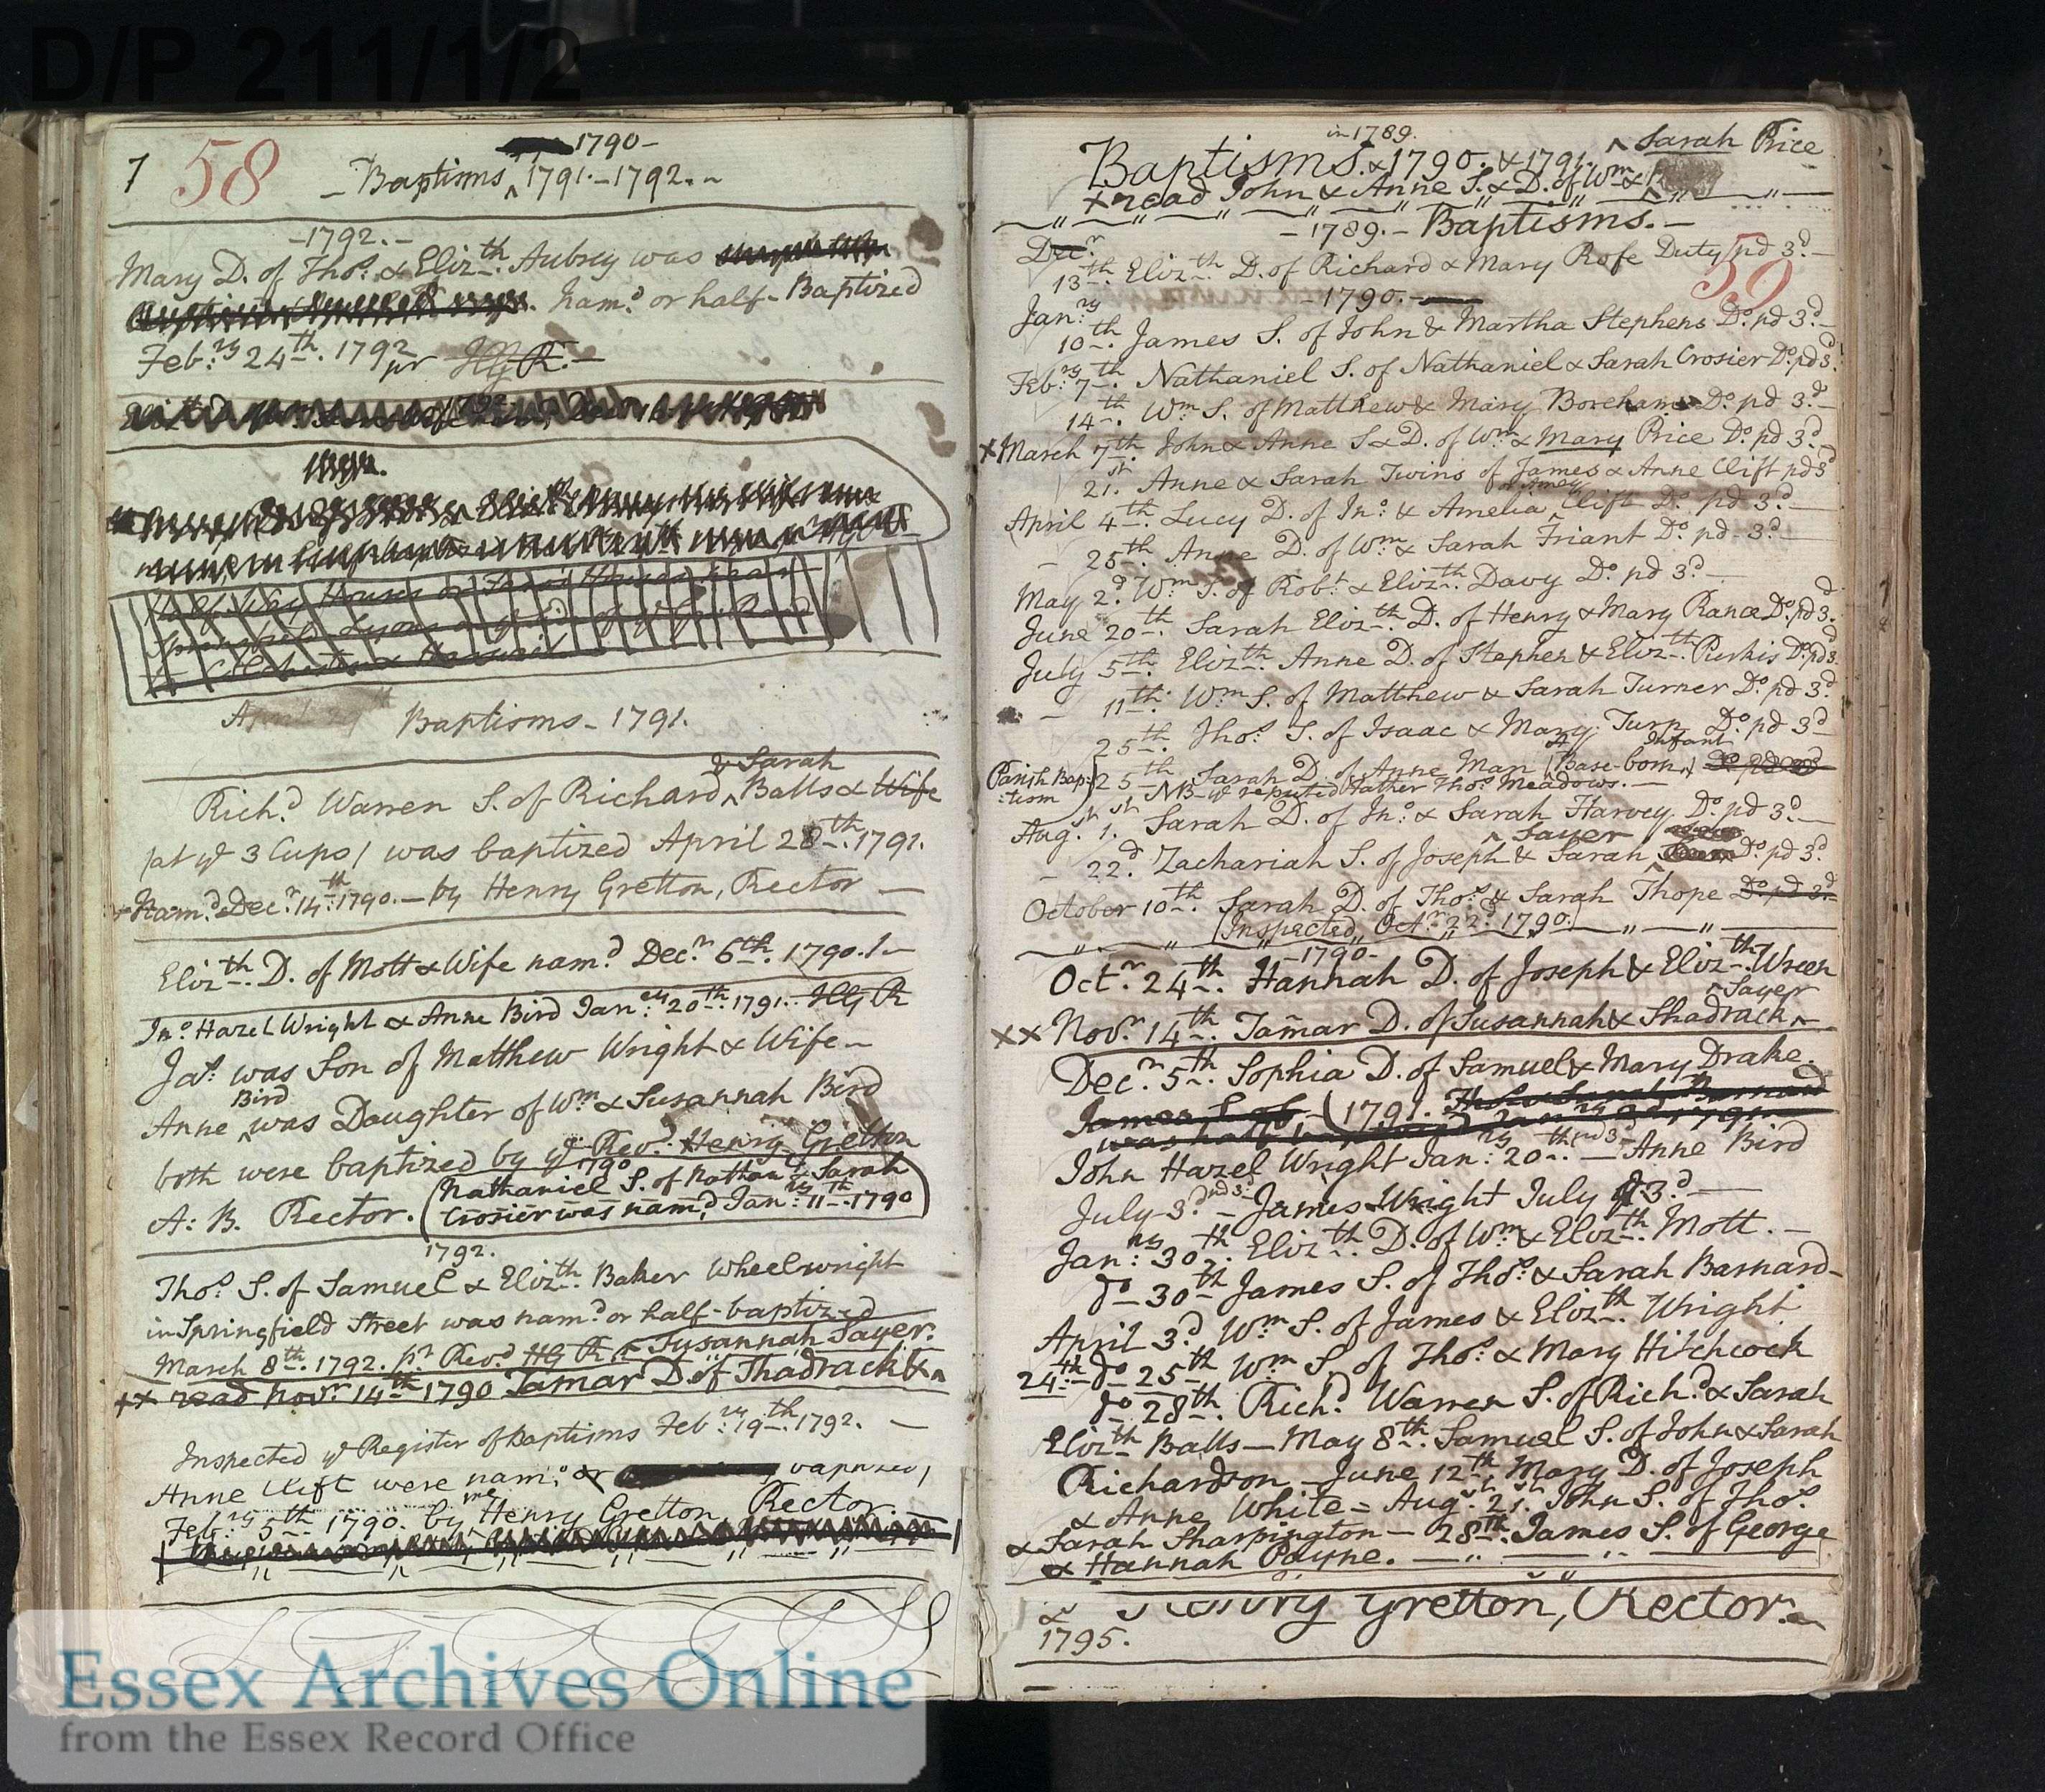 D/P 211/1/2
7 58
1790-
- Baptisms ^ 1791.-1792.~
-1792.-
Mary D. of Thos. & Elizth. Aubrey was
Nam.d or half-Baptized
Feb.ry 24th. 1792 pr HGR.-
Baptisms - 1791.
& Sarah
Rich.d Warren S. of Richard ^ Balls & Wife
/at ye 3 Cups/ was baptized April 28th. 1791.
+ Nam.d Dec.r 14th. 1790.- by Henry Gretton, Rector -
Elizth. D. of Mott & Wife nam.d Dec.r 6th. 1790.
Jn.o Hazel Wright & Anne Bird Jan.ry 20th. 1791. HG R
was Son of Matthew Wright & Wife -
Bird
Anne ^ was Daughter of Wm & Susannah Bird
both were baptized by ye Rev.d Henry Gretton
A: B. Rector.
1790
(Nathaniel S. of Nathan.l & Sarah
Crosier was nam.d Jan.ry 11th. 1790)
1792.
Thos. S. of Samuel & Elizth. Baker Wheelwright
in Springfield Street was nam.d or half-baptized
March 8th. 1792. pr Rev.d HG R ^ Susannah Sayer.
++ read Nov.r 14th 1790 Tamar D. of Shadrack & ^
Inspected ye Register of Baptisms Feb.ry 19th. 1792. -
Anne Clift were nam.d or baptized,
Feb.ry 5th. 1790. by ^ me Henry Gretton, Rector.
in 1789.
Baptisms. & 1790. & 1791. ^ Sarah Price
+ read John & Anne S. & D. of Wm & ^
- 1789. - Baptisms. -
Dec.r
13th. Elizth D. of Richard & Mary Rofe Duty pd 3.d -
59
- 1790. -
Jan.ry
10th. James S. of John & Martha Stephens Do. pd 3.d -
Feb.ry 7th. Nathaniel S. of Nathaniel & Sarah Crosier Do. pd 3.d
14th. Wm S. of Matthew & Mary Boreham Do. pd 3.d -
x March 7th. John & Anne S & D. of Wm & Mary Price Do. pd 3.d
21st. Anne & Sarah Twins of James & Anne Clift pd 3d
April 4th. Lucy D. of Jn.o & Amelia ^ Clift Do. pd 3.d -
- 25th. Anne D. of Wm & Sarah Friant Do. pd 3.d -
May 2.d Wm S. of Robt. & Elizth. Davy Do. pd 3.d -
June 20th. Sarah Elizth. D. of Henry & Mary Rance Do. pd 3.d
July 5th. Elizth. Anne D. of Stephen & Elizth. Purkis Do. pd 3.d
- 11th. Wm S. of Matthew & Sarah Turner Do. pd 3.d
25th. Thos. S. of Isaac & Mary Turp Do. pd 3.d
Infant
Parish Bap-
:tism
25th. Sarah D. of Anne Man (Base-born) Do. pd 3d
NB - ye reputed Father Thos. Meadows. -
Aug.st 1.st Sarah D. of Jn.o & Sarah Harvey Do. pd 3.d -
^ Sayer
- 22.d Zachariah S. of Joseph & Sarah ^ Do. pd 3.d
October 10th. Sarah D. of Thos. & Sarah Thope Do. pd 3.d
(Inspected, Oct.r 22.d 1790.)
- 1790 -
Oct.r 24th. Hannah D. of Joseph & Elizth. Wreen
^ Sayer
xx Nov.r 14th. Tamar D. of Susannah & Shadrack ^
Dec.r 5th. Sophia D. of Samuel & Mary Drake.
James S. of (1791. Thos. & Sarah Barnard
was half baptized Jan.ry 1791
John Hazel Wright Jan.ry 20th. pd 3d - Anne Bird
July 3.d pd 3d - James Wright July 3.d -
Jan.ry 30th. Elizth. D. of Wm & Elizth. Mott. -
do - 30th James S. of Thos. & Sarah Barnard -
April 3.d Wm S. of James & Elizth Wright
24th. - do 25th Wm S. of Thos. & Mary Hitchcock
do 28th. Rich.d Warren S. of Rich.d & Sarah
Elizth Balls - May 8th. Samuel S. of John & Sarah
Richardson - June 12th. Mary D. of Joseph
& Anne White = Aug.st 21.st John S. of Thos.
& Sarah Sharpington - 28th. James S. of George
& Hannah Payne. -
Henry Gretton, Rector. -
&
1795.
Essex Archives Online
from the Essex Record Office